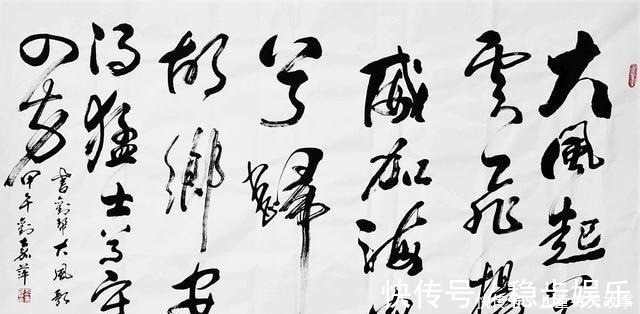 大風起
雲飛揚
威加海
兮歸
故鄉安
得猛士兮守
四方
書劉邦大風歌
甲午劉嘉萍
快传号/稳步娱乐